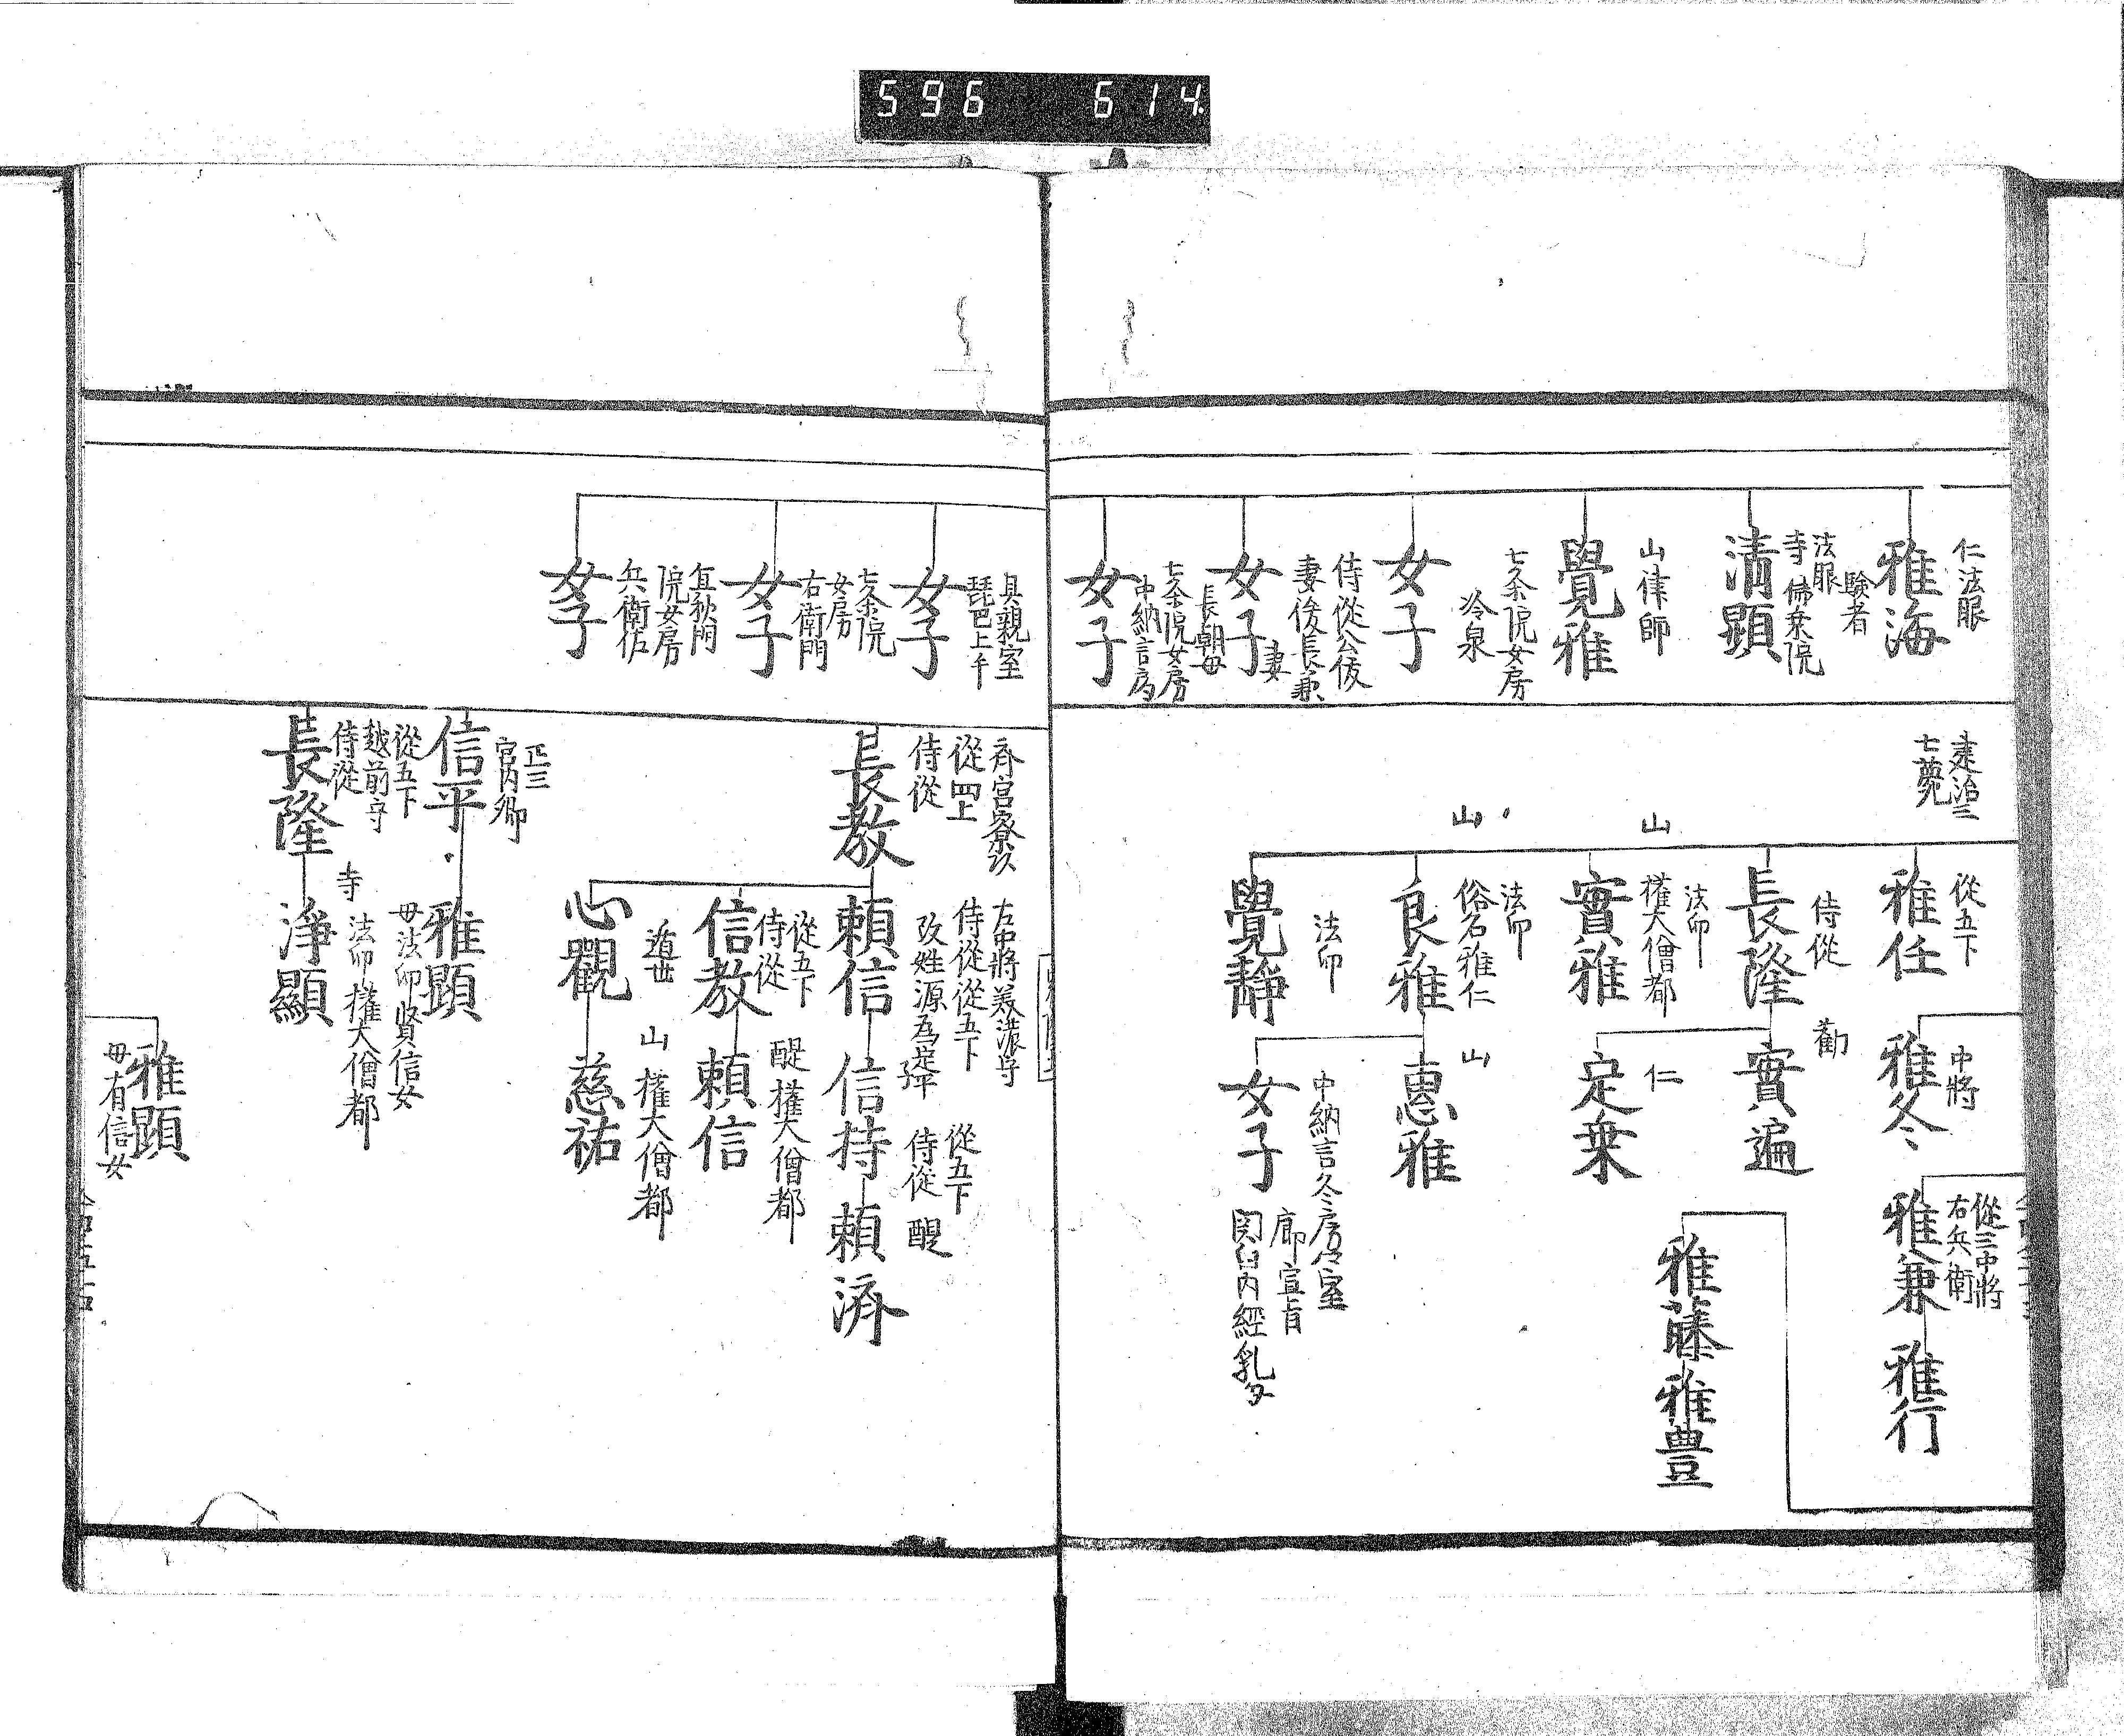 596 614
仁法眼
雅海
験者
法眼
寺
清顕
山律師
覺雅
七条院女房
冷泉
女子
侍從公仮
妻後長兼
妻
女子
長朝母
七条院女房
中納言局
女子
建治三
七薨
從五下
雅任
侍從
長隆
山
法印
權大僧都
實雅
山
法印
俗名雅仁
良雅
法印
覺靜
中將
雅冬
勸
實遍
仁
定乗
山
惠雅
中納言冬房室
女子
從三中將
右兵衛
雅兼
雅行
雅藤
雅豊
具親室
琵巴上手
女子
七条院
女房
右衛門
女子
院女房
兵衛佐
女子
齊宮寮
從四上
侍從
長教
正三
宮内卿
信平
從五下
越前守
侍從
長隆
左中將美濃守
侍從從五下
改姓源為定平
子
頼信
從五下
侍從
信教
遁世
心觀
母法印賢信女
雅顕
寺
法印權大僧都
淨顯
從五下
侍從
信持
醍權大僧都
頼信
山權大僧都
慈祐
雅顕
母有信女
醍
頼濟